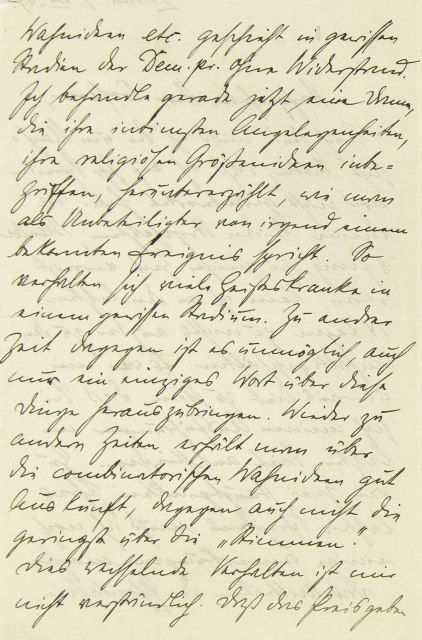 Wahnideen etc. geschieht in gewissen
Stadien der Dem. pr. ohne Widerstand.
Ich behandle gerade jetzt eine Dame,
die ihre intimsten Angelegenheiten,
ihre religiösen Größenideen inbe-
griffen, herunter erzählt, wie man
als Unbeteiligter von irgend einem
bekannten Ereignis spricht. So
verhalten sich viele Geisteskranke in
einem gewissen Stadium. Zu andrer
Zeit dagegen ist es unmöglich, auch
nur ein einziges Wort über diese
Dinge herauszubringen. Wieder zu
andern Zeiten erhält man über
die combinatorischen Wahnideen gut
Auskunft, dagegen auch nicht die
geringste über die „Stimmen."
Dies wechselnde Verhalten ist mir
nicht verständlich. Daß das Preisgeben